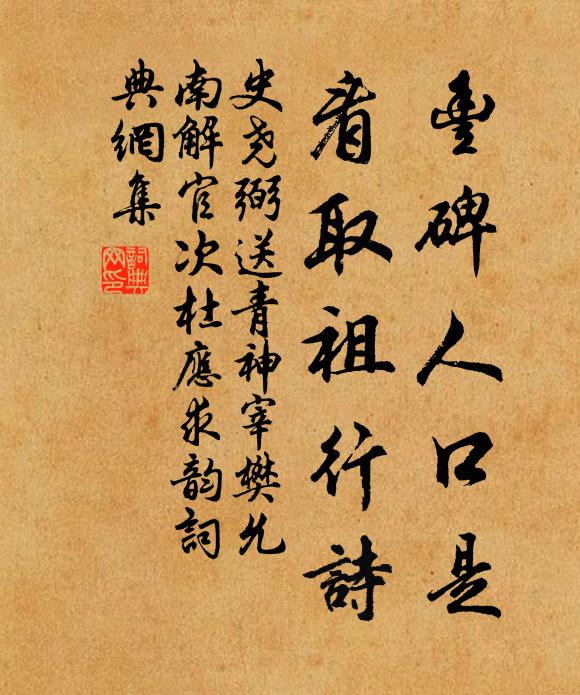 豊碑人口是
看取祖行詩
史尧弼送青神宰樊允
南解官次杜應求韵詞
典網集
詞典
网印